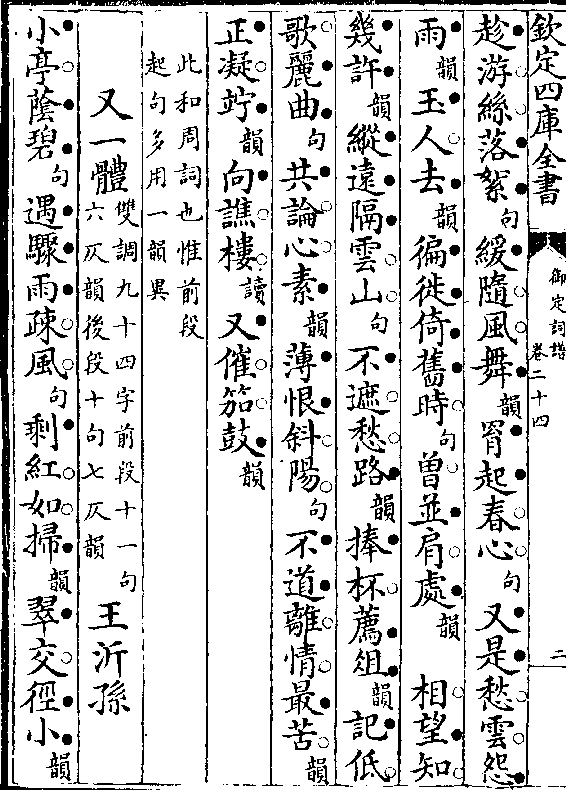 欽定四庫全書
御定詞譜
卷二十四
二
趁游絲落絮句緩隨風舞韻胷起春心句又是愁雲怨
雨韻玉人去韻徧徙倚舊時句曾並肩處韻 相望知
幾許韻縱遠隔雲山句不遮愁路韻捧杯薦俎韻記低
歌麗曲句共論心素韻薄恨斜陽句不道離情最苦韻
正凝竚韻向譙樓讀又催笳鼓韻
此和周詞也惟前段
起句多用一韻異
又一體 雙調九十四字前段十一句
六仄韻後段十句七仄韻 王沂孫
小亭蔭碧句遇驟雨疎風句剩紅如掃韻翠交徑小韻